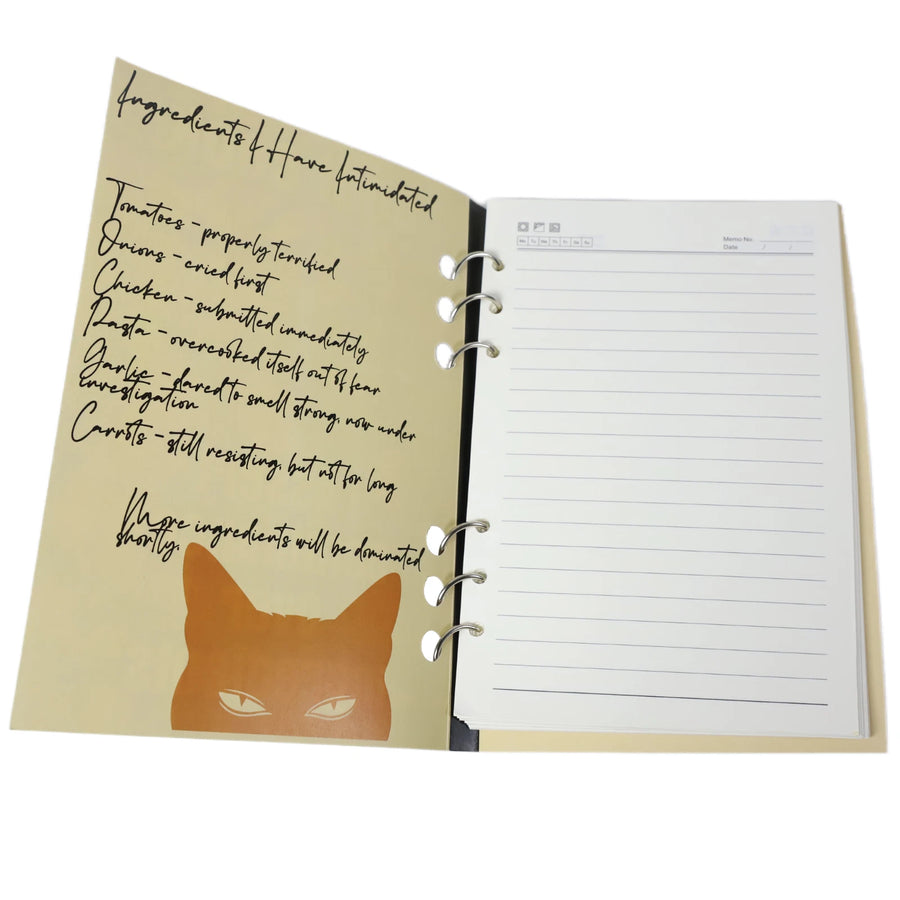 Ingredients I Have Intimidated
Tomatoes - properly terrified
Onions - cried first
Chicken - submitted immediately
Pasta - overcooked itself out of fear
Garlic - dared to smell strong, now under
investigation
Carrots - still resisting, but not for long
More ingredients will be dominated
shortly.
Memo No.
Mo Tu We Th Fr Sa Su
Date / /